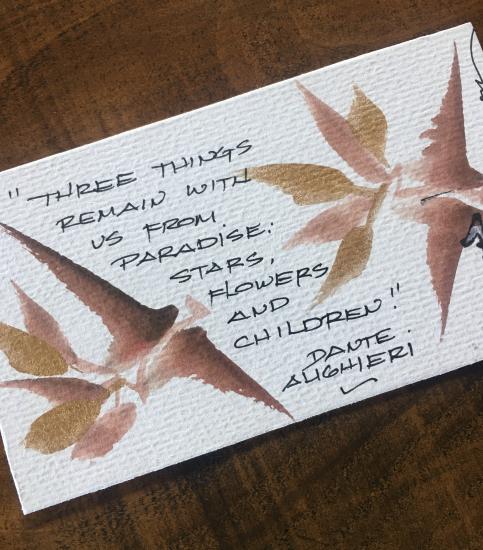 "THREE THINGS
REMAIN WITH
US FROM
PARADISE:
STARS,
FLOWERS
AND
CHILDREN!"
DANTE
ALIGHIERI